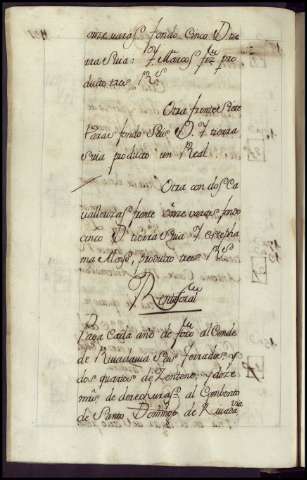 onze varas fondo Cinco D tie
rra Suia: Y Marcos producto tres Rs
Otra frente siete
varas fondo Seis D. Y tierra
Suia producto un Real
Otra con dos Ca
vallerizas frente onze varas fondo
cinco D tierra Suia
producto tres Rs
Rentta foral
Paga Cada año de foro al Conde
de Rivadavia Seis ferrados y
dos quartos de Zenteno, y doze
mrs de derechuras al Combento
de Santo Domingo de Rivadavia